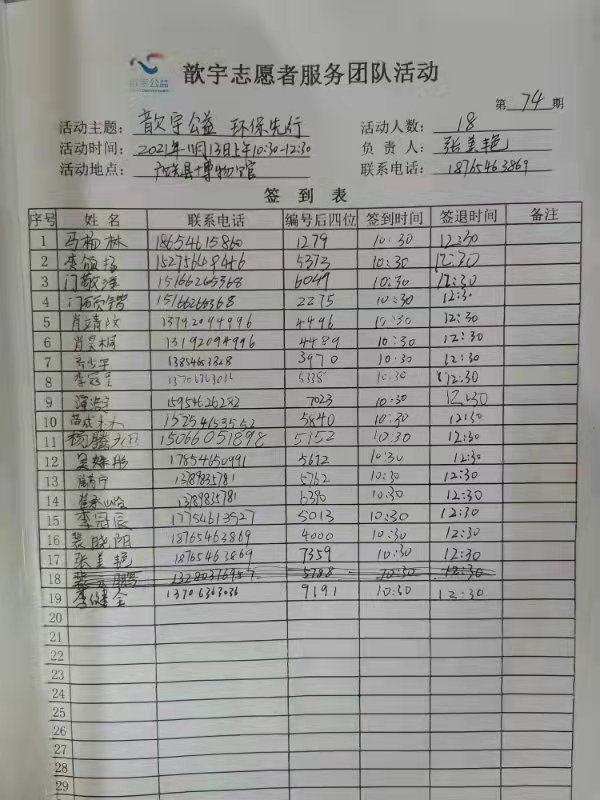 歆宇公益
歆宇志愿者服务团队活动
第 74 期
活动主题: 歆宇公益 环保先行 活动人数: 18
活动时间: 2021年11月13日上午10:30-12:30 负责人: 张美艳
活动地点: 博物馆 联系电话: 18765463869
签到表
序号 姓名 联系电话 编号后四位 签到时间 签退时间 备注
1 马杨林 18654615860 1279 10:30 12:30
2 15275648446 5373 10:30 12:30
3 门敬泽 15166265368 6049 10:30 12:30
4 15166265368 2275 10:30 12:30
5 肖靖汶 13792094996 4496 10:30 12:30
6 肖昊桐 13192094996 4489 10:30 12:30
7 3970 10:30 12:30
8 李冠呈 5338 10:30 12:30
9 15954626282 7023 10:30 12:30
10 苗成林 15254153552 5840 10:30 12:30
11 15066051898 5152 10:30 12:30
12 17654650991 5672 10:30 12:30
13 13789835781 5762 10:30 12:30
14 13789835781 6390 10:30 12:30
15 李冠辰 17754613527 5013 10:30 12:30
16 裴晓阳 18765463869 4000 10:30 12:30
17 张美艳 18765463869 7359 10:30 12:30
18 10:30 12:30
19 李健全 13706363036 9191 10:30 12:30
20
21
22
23
24
25
26
27
28
29